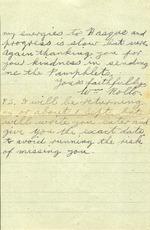 my energies to Basque and
progress is slow but sure.
Again thanking you for
your kindness in sending
me the Pamphlets,
Yours faithfully,
Wm Rollo.
P.S. I will be returning
on or about
will write you later and
give you the exact date
to avoid running the risk
of missing you